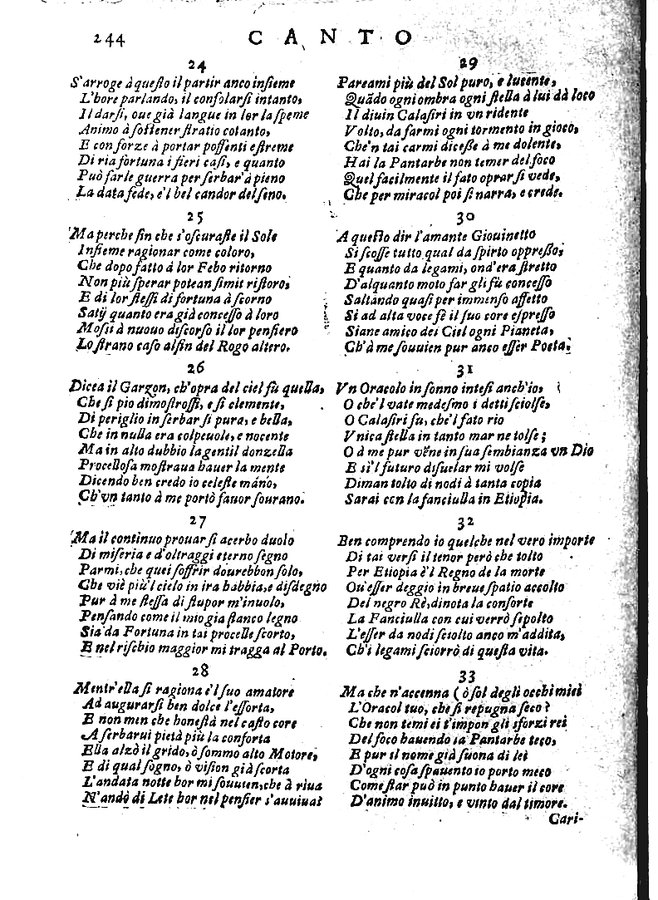 244
CANTO
24
S'arroge à questo il partir anco insieme
L'hore parlando, il consolarsi intanto,
Il darsi, oue già langue in lor la speme
Animo à sostener stratio cotanto,
E con forze à portar possenti estreme
Di ria fortuna i fieri casi, e quanto
Può farle guerra per serbar à pieno
La data fede, e'l bel candor del seno.
25
Ma perche fin che s'oscurasse il Sole
Insieme ragionar come coloro,
Che dopo fatto à lor Febo ritorno
Non più sperar potean simil ristoro,
E di lor stessi di fortuna à scorno
Satij quanto era già concesso à loro
Mossi à nuouo discorso il lor pensiero
Lo strano caso alfin del Rogo altero.
26
Dicea il Garzon, ch'opra del ciel fù quella,
Che sì pio dimostrossi, e sì clemente,
Di periglio in serbar sì pura, e bella,
Che in nulla era colpeuole, e nocente
Ma in alto dubbio la gentil donzella
Procellosa mostraua hauer la mente
Dicendo ben credo io celeste mano,
Ch'vn tanto à me portò fauor sourano.
27
Ma il continuo prouar sì acerbo duolo
Di miseria e d'oltraggi eterno segno
Parmi, che quei soffrir dourebbon solo,
Che viè più'l cielo in ira habbia, e disdegno
Pur à me stessa di stupor m'inuolo,
Pensando come il mio già stanco legno
Sia da Fortuna in tai procelle scorto,
E nel rischio maggior mi tragga al Porto.
28
Mentr'ella sì ragiona è'l suo amatore
Ad augurarsi ben dolce l'essorta,
E non men che honestà nel casto core
A serbarui pietà più la conforta
Ella alzò il grido, ò sommo alto Motore,
E di qual sogno, ò vision già scorta
L'andata notte hor mi souuien, che à riua
N'andò di Lete hor nel pensier s'auuiua!
29
Pareami più del Sol puro, e lucente,
Quãdo ogni ombra ogni stella à lui dà loco
Il diuin Calasiri in vn ridente
Volto, da farmi ogni tormento in gioco,
Che'n tai carmi dicesse à me dolente,
Hai la Pantarbe non temer del foco
Quel facilmente il fato oprar si vede,
Che per miracol poi si narra, e crede.
30
A questo dir l'amante Giouinetto
Si scosse tutto qual da spirto oppresso,
E quanto da legami, ond'era stretto
D'alquanto moto far gli fù concesso
Saltando quasi per immenso affetto
Sì ad alta voce fè il suo core espresso
Siane amico dei Ciel ogni Pianeta,
Ch'à me souuien pur anco esser Poeta.
31
Vn Oracolo in sonno intesi anch'io,
O che'l vate medesmo i detti sciolse,
O Calasiri fu, che'l fato rio
Vnica stella in tanto mar ne tolse;
O à me pur vẽne in sua sembianza vn Dio
E sì'l futuro disuelar mi volse
Diman tolto di nodi à tanta copia
Sarai con la fanciulla in Etiopia.
32
Ben comprendo io quel che nel vero importe
Di tai versi il tenor però che tolto
Per Etiopia è'l Regno de la morte
Ou'esser deggio in breue spatio accolto
Del negro Rè, dinota la consorte
La Fanciulla con cui verrò sepolto
L'esser da nodi sciolto anco m'addita,
Ch'i legami sciorrò di questa vita.
33
Ma che n'accenna (ò sol degli occhi miei
L'Oracol tuo, che sì repugna seco?
Che non temei t'impon gli sforzi rei
Del foco hauendo la Pantarbe teco,
E pur il nome già suona di lei
D'ogni cosa spauento io porto meco
Come star può in punto hauer il core
D'animo inuitto, e vinto dal timore.
Cari-